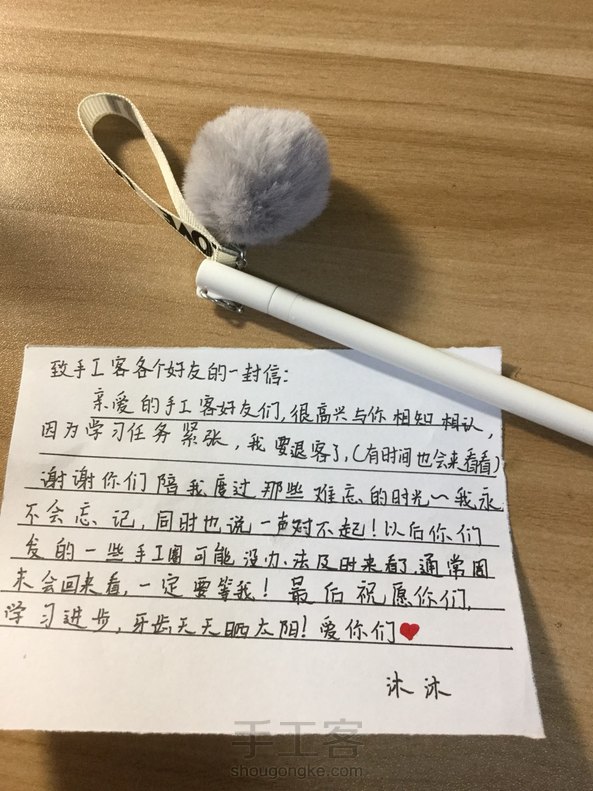 OVE
致手工客各个好友的一封信:
亲爱的手工客好友们,很高兴与你相知相认,
因为学习任务紧张,我要退客了,(有时间也会来看看)
谢谢你们陪我度过那些难忘的时光~我永
不会忘记,同时也说一声对不起!以后你们
发的一些手工圈可能没办法及时来看了,通常周
末会回来看,一定要等我!最后祝愿你们,
学习进步,牙齿天天晒太阳!爱你们❤
沐沐
手工客
shougongke.com